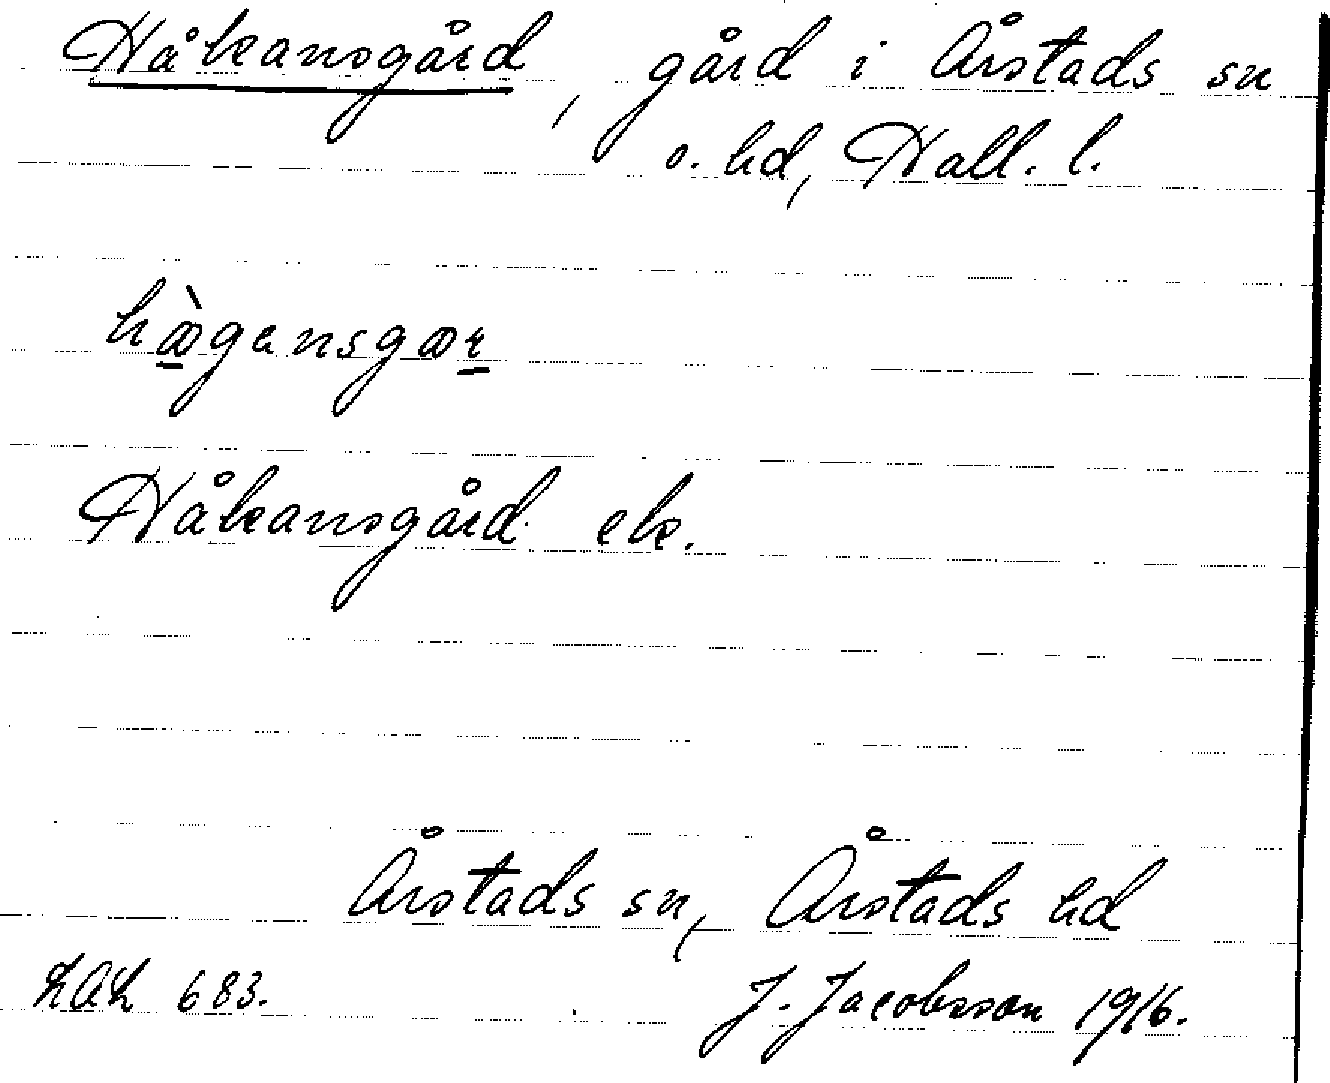 Håkansgård, gård i Årstads sn
o. hd, Hall. l.
hàgansgar
Håkansgård ek.
Årstads sn, Årstads hd
LAL 683.
J. Jacobsson 1916.